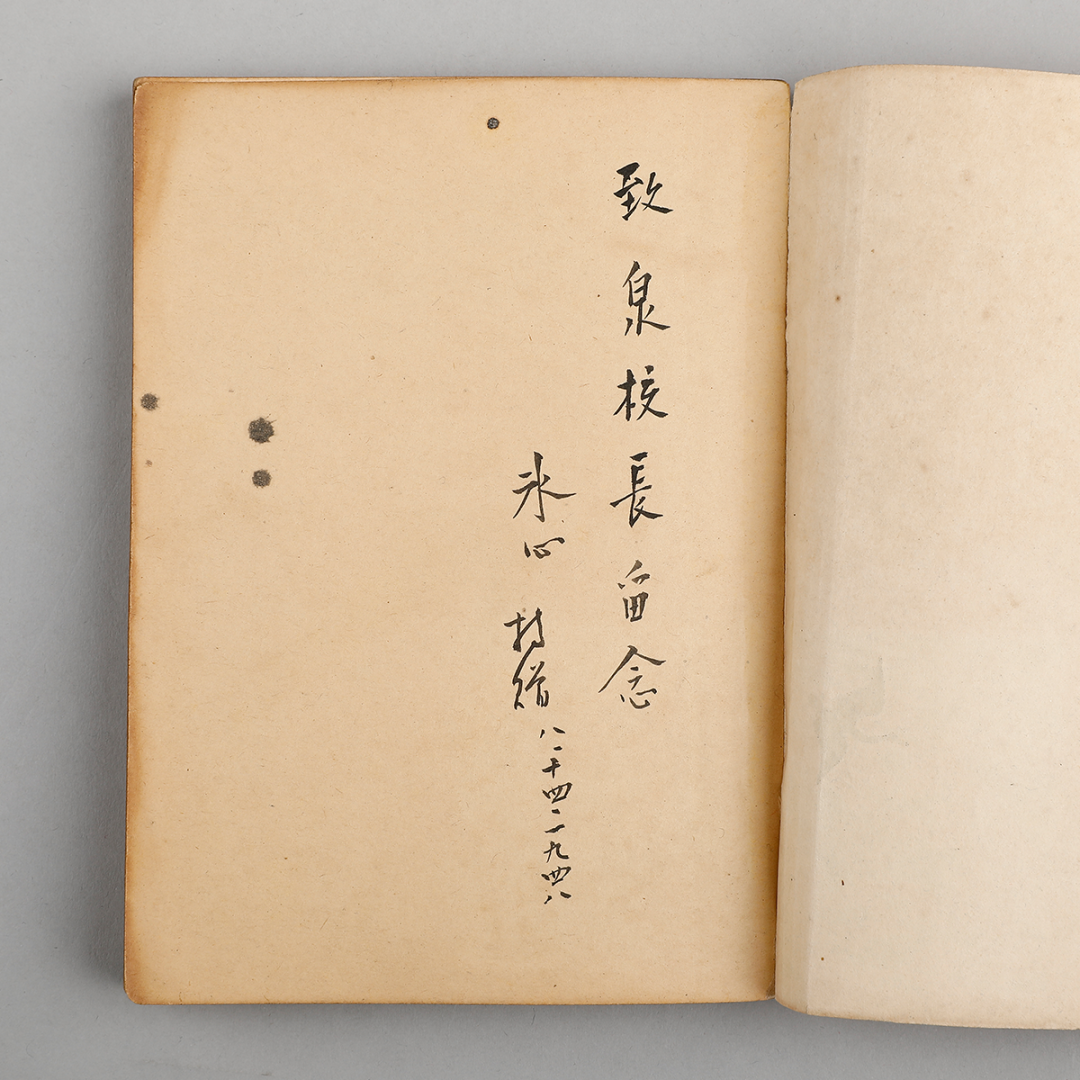 致泉校長留念
冰心 持贈
八、十四、一九四八